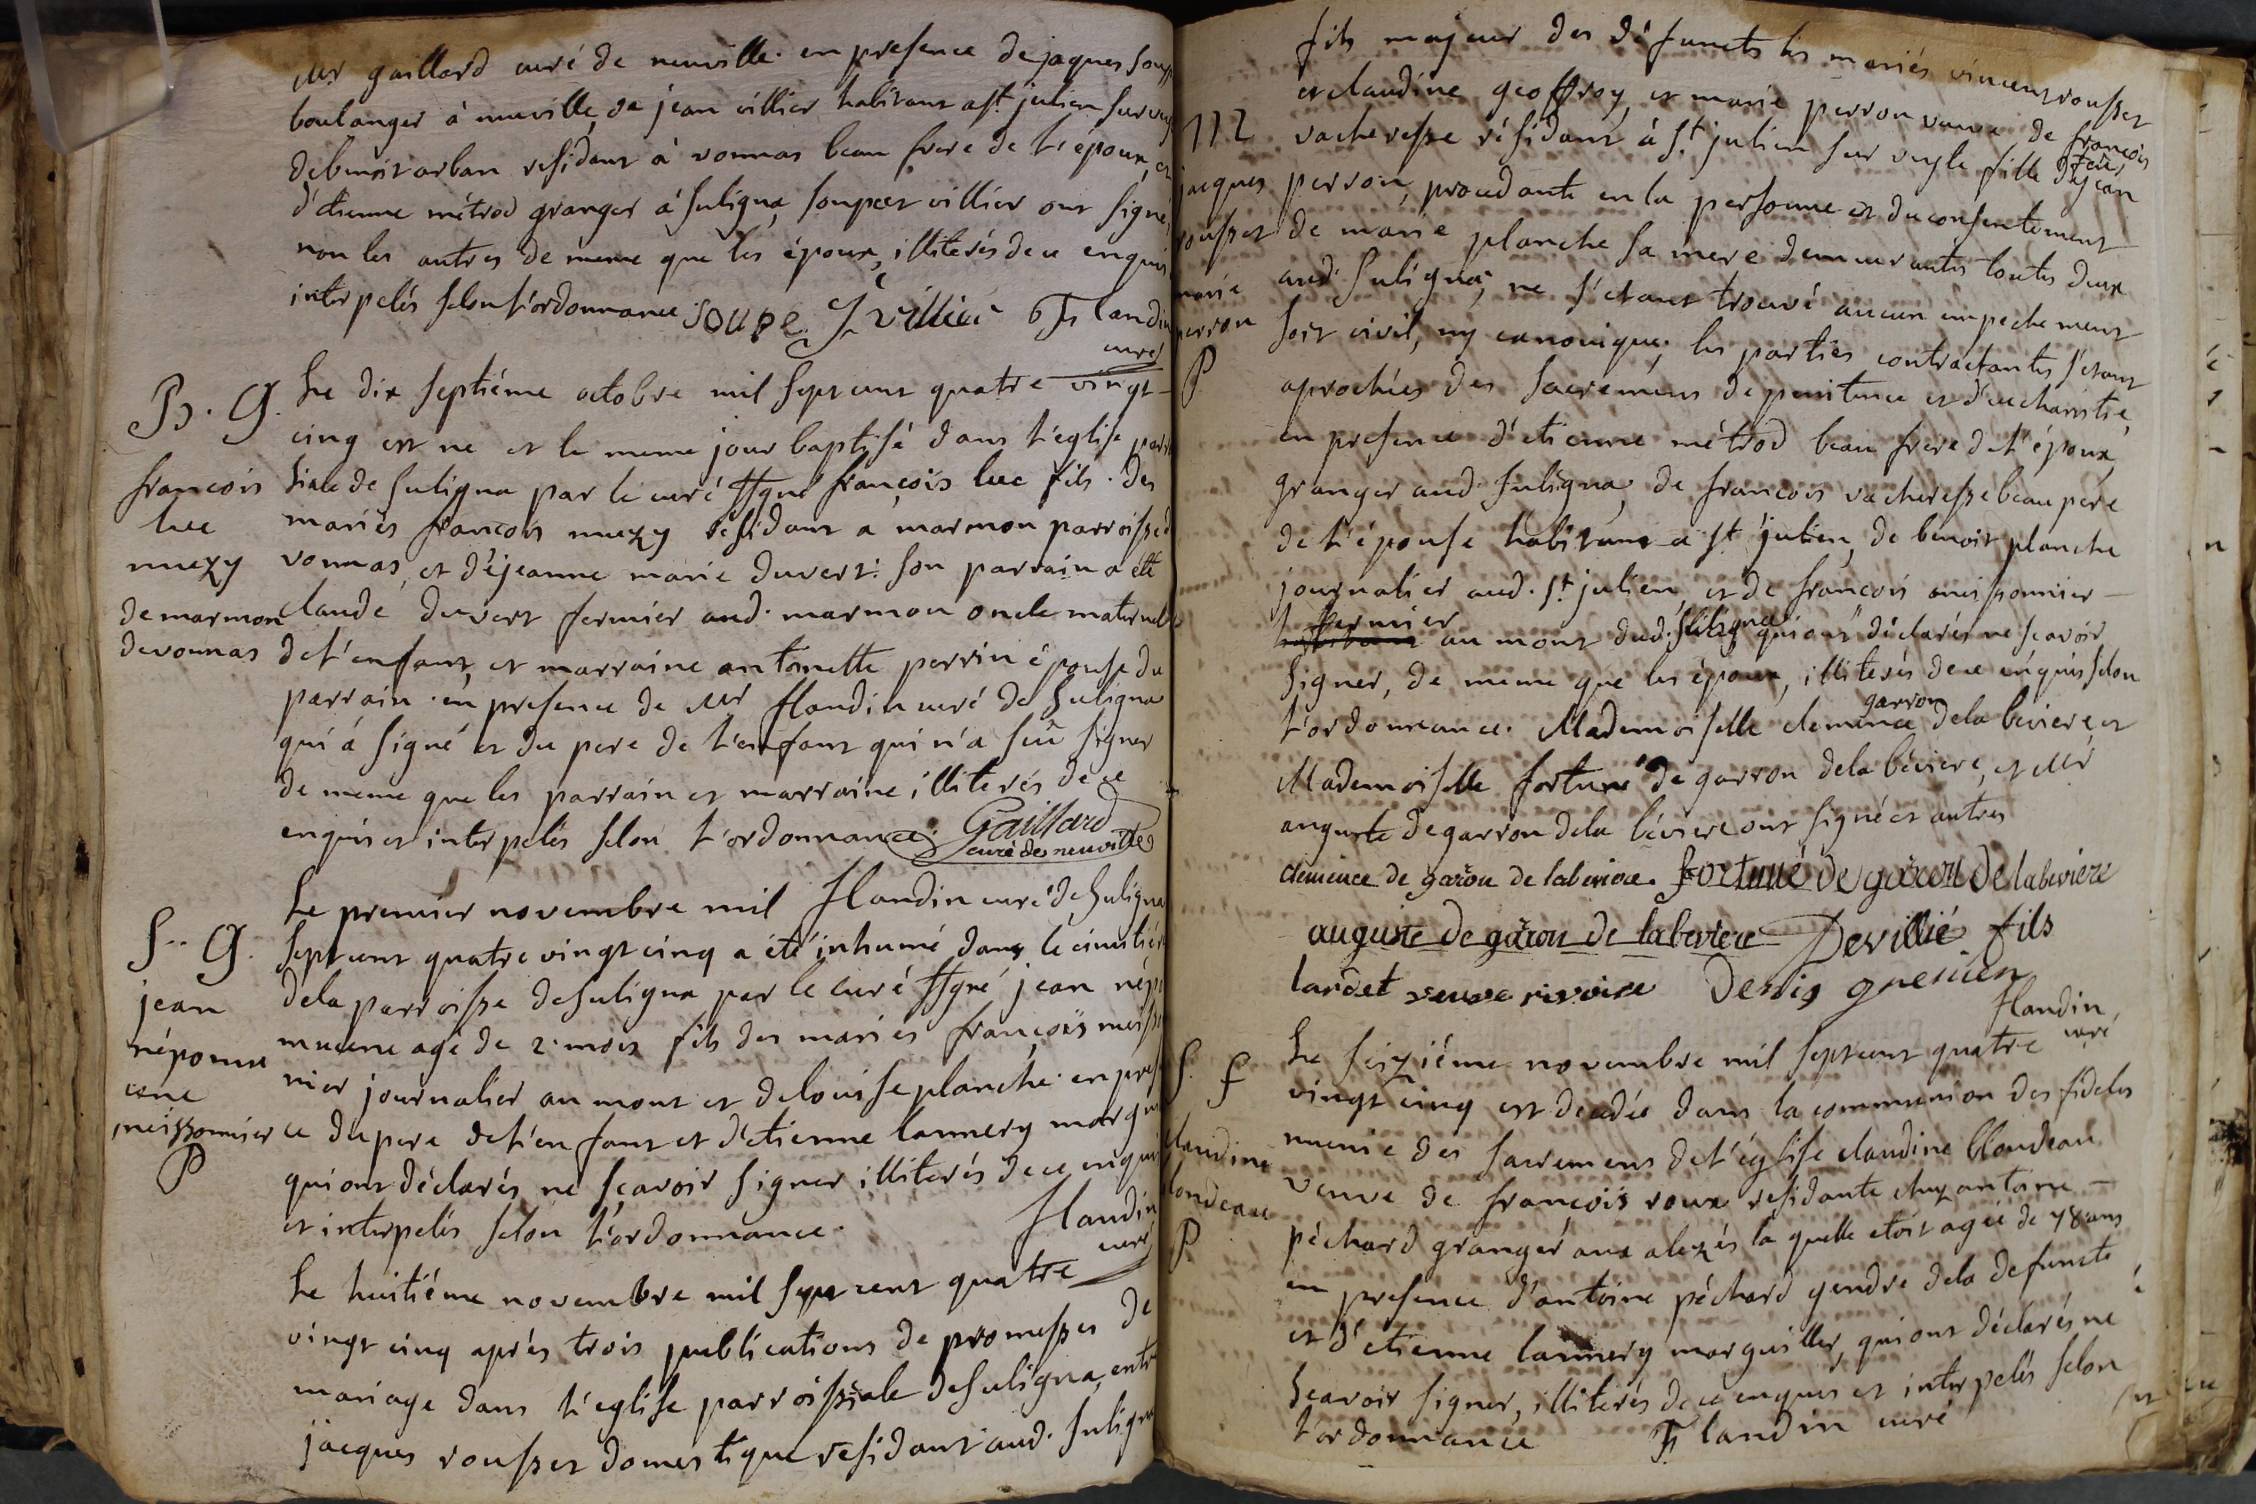 Mr gaillard curé de neuville. en presence de jaques soupe
boulanger à neuville, de jean villier habitant a st julien sur veyle
de benoit arban residant à vonnas beau frere de l'époux, et
d'étienne métrod granger à suligna, soupe et villier ont signé,
non les autres de meme que les époux, illiterés de ce enquis
interpelés selon l'ordonnance soupe J villier Flandin
curé
B. G.
Le dix septiéme octobre mil sept cent quatre vingt
cinq est ne et le meme jour baptisé dans l'eglise parr
siale de suligna par le curé ssgné françois luc fils des
mariés françois muezy residant a marmon parroisse de
vonnas, et de jeanne marie duvert: son parrain a été
claude duvert fermier aud. marmon oncle maternel
de l'enfant, et marraine antoinette perrin épouse du
parrain. en presence de Mr flandin curé de suligna
qui a signé et du pere de l'enfant qui n'a sçû signer
de meme que les parrain et marraine illiterés de ce
enquis et interpelés selon l'ordonnance. Gaillard
curé de neuville
françois
luc
muezy
de marmon
de vonnas
flandin curé de suligna
S. G.
Le premier novembre mil
sept cent quatre vingt cinq a été inhumé dans le cimetiére
de la parroisse de suligna par le curé ssgné jean népo
mucene agé de 2. mois fils des mariés françois meisso
nier journalier au mont et de louise planche. en presen
ce du pere de l'enfant et d'etienne lannery marguil
qui ont déclarés ne sçavoir signer illiterés de ce enquis
et interpelés selon l'ordonnance.
flandin
curé
jean
népomu
cene
meissonnier
P
Le huitiéme novembre mil sept cent quatre
vingt cinq après trois publications de promesses de
mariage dans l'eglise parroissiale de suligna, entre
jacques rousset domestique residant aud. suligna
fils majeur des défuncts les mariés vincent rousset
et claudine geoffroy, et marie perron veuve de françois
vacheresse résidant à st julien sur veyle fille de feu jean
perron, procedante en la personne et du consentement
de marie planche sa mere demeurantes toutes deux
aud. suligna; ne s'étant trouvé aucun empechement
soit civil, ny canonique; les parties contractantes s'étant
aprochées des sacremens de penitence et d'eucharistie,
en presence d'etienne métrod beau frere de l'époux,
granger aud. suligna, de françois vacheresse beau pere
de l'épouse habitant a st julien, de benoit planche
journalier aud. st julien, et de françois meissonnier
fermier au mont dud. suligna qui ont déclarés ne scavoir
signer, de meme que les époux, illiterés de ce enquis selon
l'ordonnance. Mademoiselle clemence garron de la beviere, et
Mademoiselle fortuné de garron de la béviere, et Mr
auguste de garron de la béviere ont signé et autres
clemence de garon de labeviere. fortuné de garon de labeviere
auguste de garon de labeviere Devillié fils
lardet veuve rivoire Denis
flandin
curé
112
jacques
rousset
marie
perron
P
S. F
Le seiziéme novembre mil sept cent quatre
vingt cinq est decedée dans la communion des fideles
munie des sacremens de l'église claudine blondeau
veuve de françois roux residante chez antoine
péchard granger aux alezés la quelle etoit agée de 78 ans
en presence d'antoine péchard gendre de la defuncte
et d'étienne lannery marguiller, qui ont déclarés ne
scavoir signer, illiterés de ce enquis et interpelés selon
l'ordonnance Flandin curé
claudine
blondeau
P